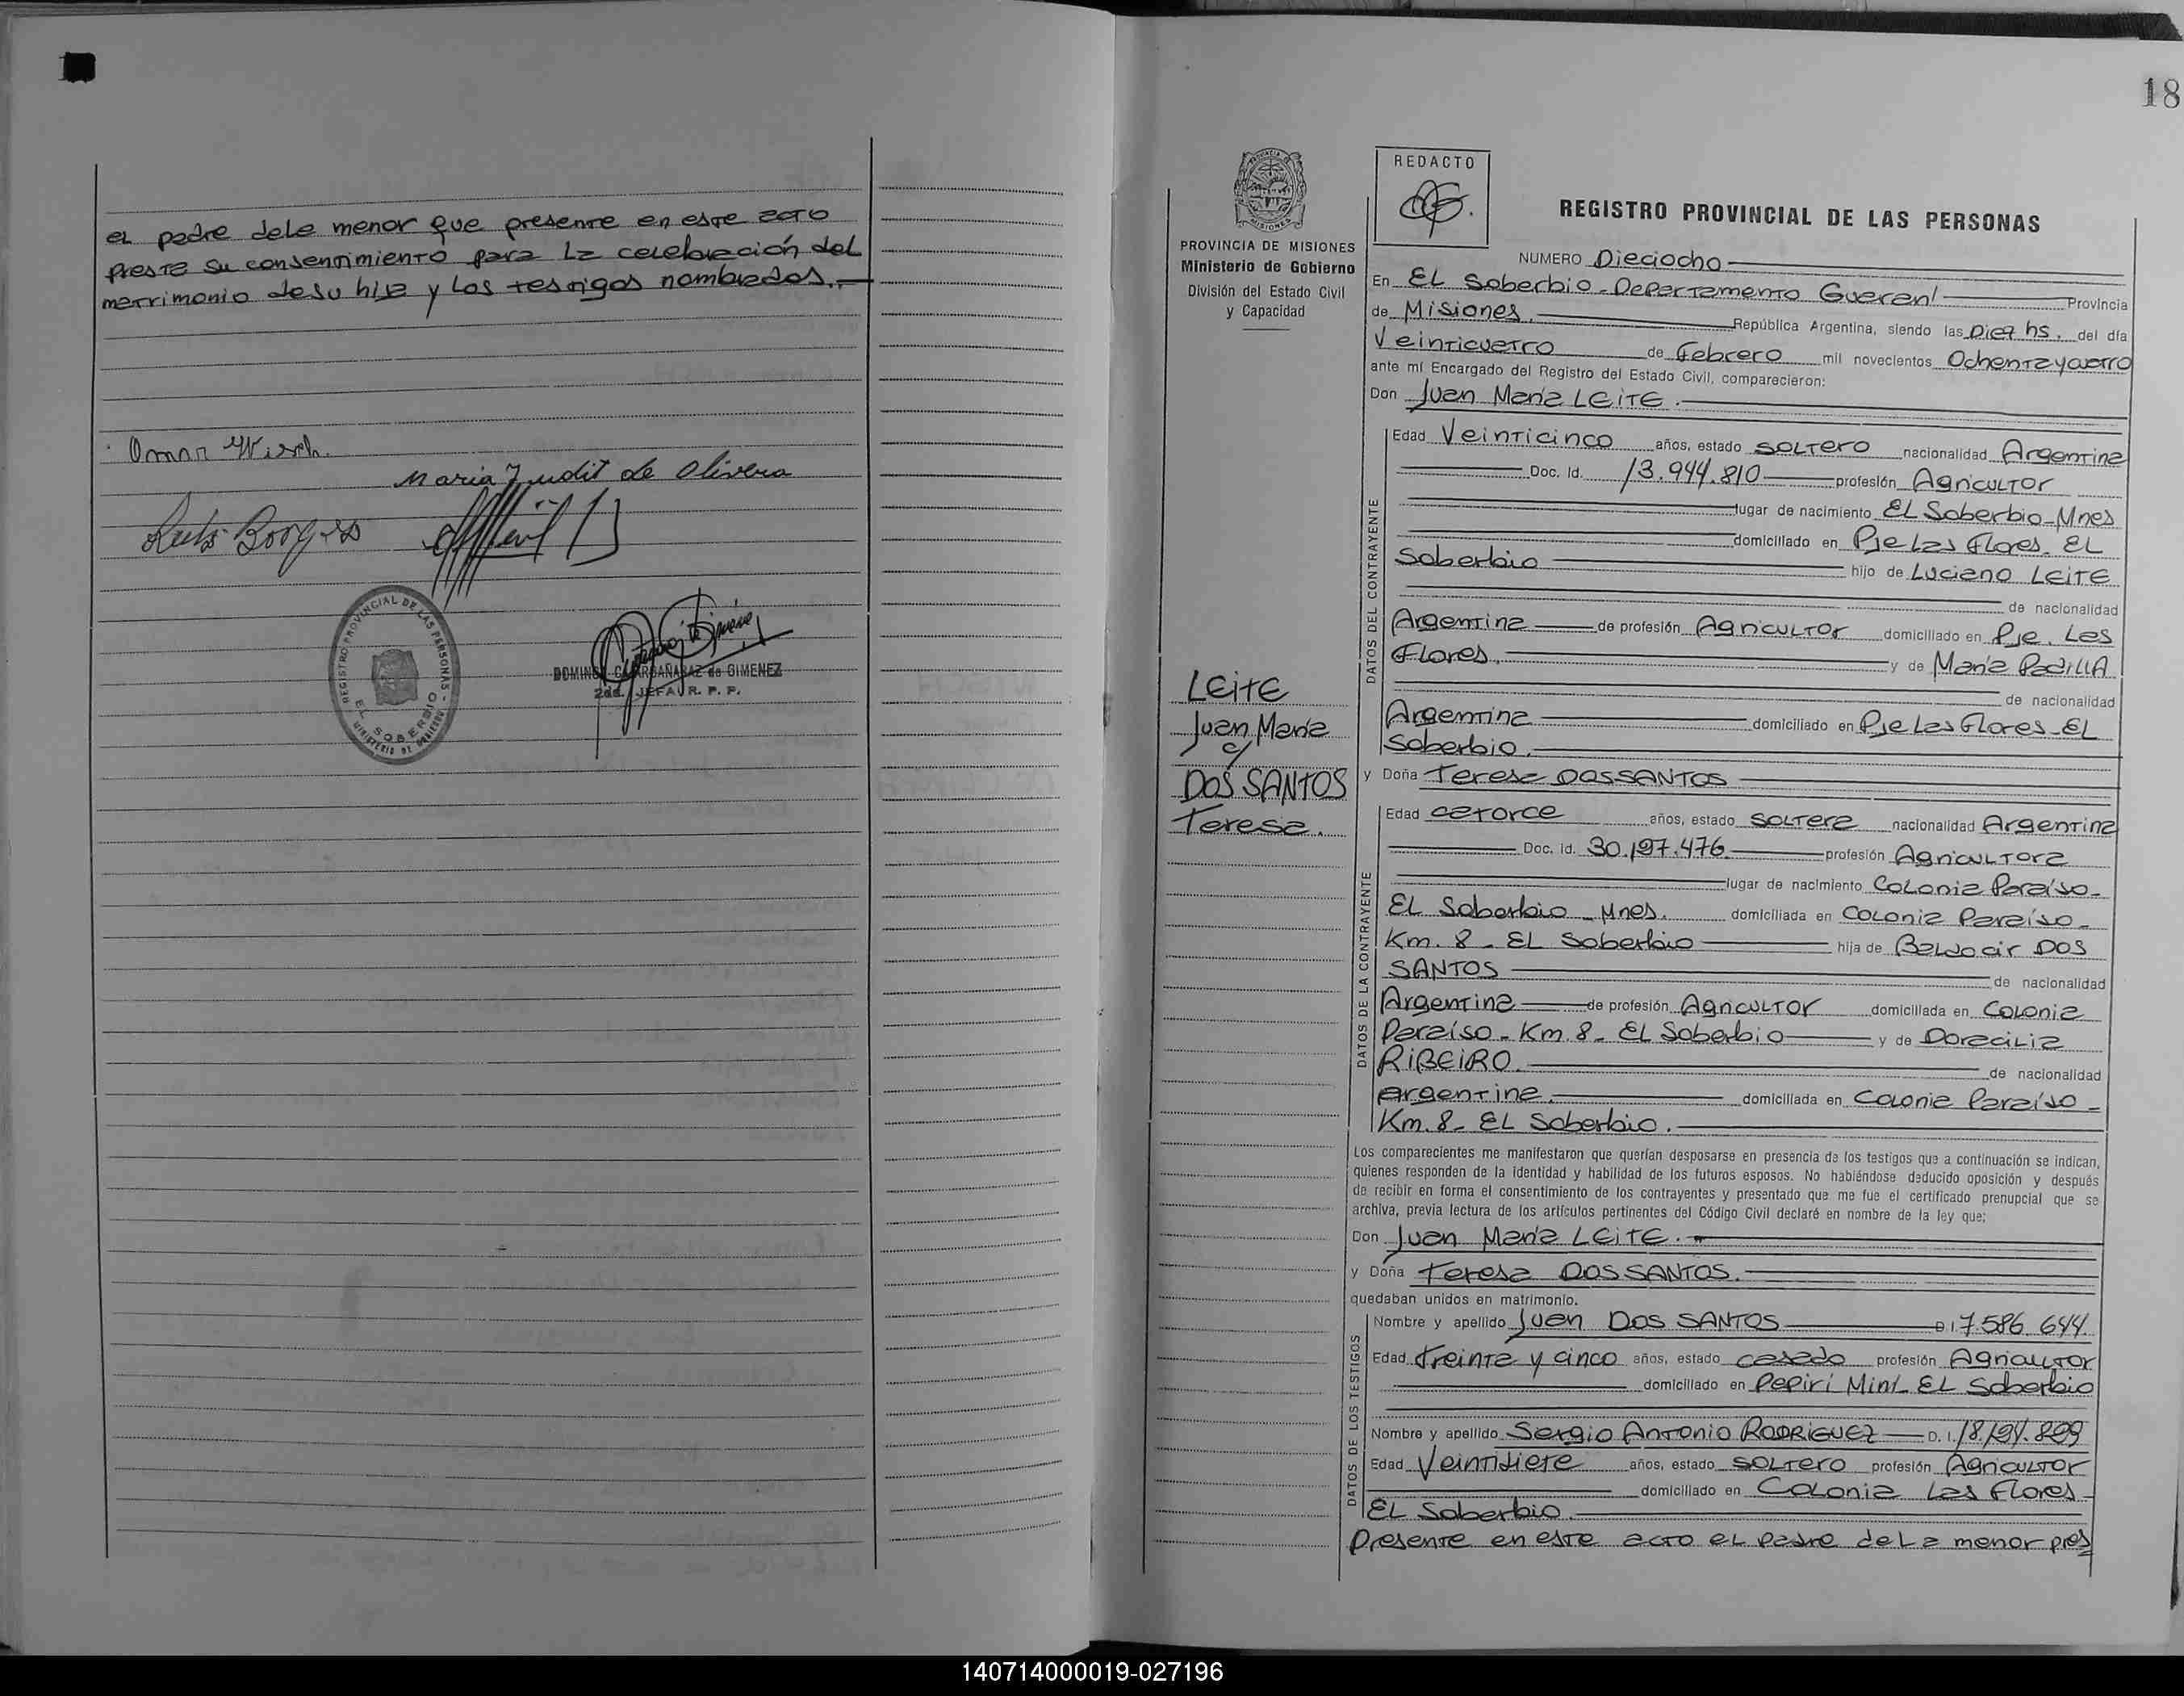 el padre dela menor que presente en este acto
preste su consentimiento para la celebración del
matrimonio desu hija y los testigos nombrados.
Omar Wisch.
Maria Judit de Olivera
Borges
REGISTRO PROVINCIAL DE LAS PERSONAS
EL SOBERBIO
MINISTERIO DE GOBIERNO
de GIMENEZ
JEFA R. P. P.
18
PROVINCIA DE MISIONES
Ministerio de Gobierno
División del Estado Civil
y Capacidad
REDACTO
REGISTRO PROVINCIAL DE LAS PERSONAS
NUMERO Dieciocho
En El Soberbio - Departamento Guaraní Provincia
de Misiones. República Argentina, siendo las Diez hs. del día
Veinticuatro de Febrero mil novecientos Ochenta y cuatro
ante mí Encargado del Registro del Estado Civil, comparecieron:
Don Juan María LEITE.
DATOS DEL CONTRAYENTE
Edad Veinticinco años, estado SOLTERO nacionalidad Argentina
Doc. Id. 13.944.810 profesión Agricultor
lugar de nacimiento El Soberbio - Mnes
domiciliado en Pje Las Flores. El
Soberbio hijo de Luciano LEITE
de nacionalidad
Argentina de profesión Agricultor domiciliado en Pje. Las
Flores. y de María PADILLA
de nacionalidad
Argentina domiciliado en Pje Las Flores - El
Soberbio.
LEITE
Juan María
c/
DOS SANTOS
Teresa.
y Doña Teresa DOS SANTOS
DATOS DE LA CONTRAYENTE
Edad catorce años, estado SOLTERA nacionalidad Argentina
Doc. Id. 30.197.476 profesión Agricultora
lugar de nacimiento Colonia Paraíso -
El Soberbio - Mnes. domiciliada en Colonia Paraíso -
Km. 8 - El Soberbio hija de Baldocir DOS
SANTOS de nacionalidad
Argentina de profesión Agricultor domiciliada en Colonia
Paraíso - Km. 8 - El Soberbio y de Doracilia
RIBEIRO. de nacionalidad
argentina. domiciliada en Colonia Paraíso -
Km. 8 - El Soberbio.
Los comparecientes me manifestaron que querían desposarse en presencia de los testigos que a continuación se indican,
quienes responden de la identidad y habilidad de los futuros esposos. No habiéndose deducido oposición y después
de recibir en forma el consentimiento de los contrayentes y presentado que me fue el certificado prenupcial que se
archiva, previa lectura de los artículos pertinentes del Código Civil declaré en nombre de la ley que:
Don Juan María LEITE.
y Doña Teresa DOS SANTOS.
quedaban unidos en matrimonio.
DATOS DE LOS TESTIGOS
Nombre y apellido Juan DOS SANTOS D.I. 7.586.644.
Edad Treinta y cinco años, estado casado profesión Agricultor
domiciliado en Pepirí Miní - El Soberbio
Nombre y apellido Sergio Antonio RODRIGUEZ D. I. 18.194.809
Edad Veintisiete años, estado SOLTERO profesión Agricultor
domiciliado en Colonia Las Flores -
El Soberbio.
Presente en este acto el padre dela menor pres
140714000019-027196